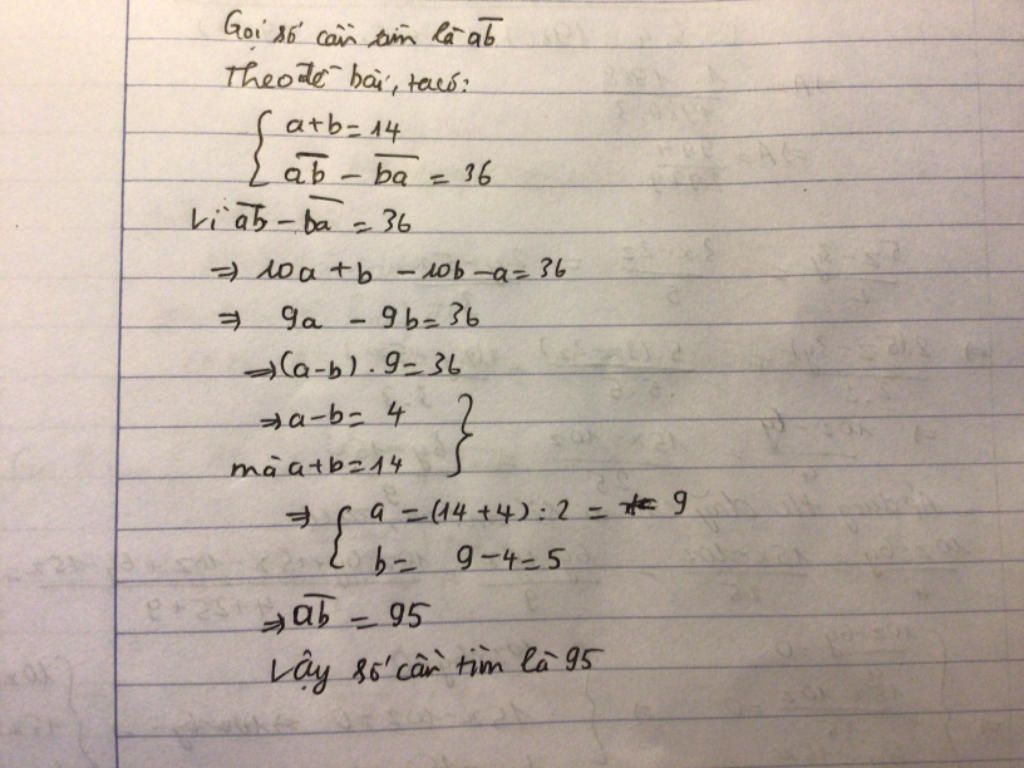 Gọi số cần tìm là ab̅
Theo đề bài, ta có:
{ a+b=14
ab̅ - ba̅ = 36
Vì ab̅ - ba̅ = 36
⇒ 10a + b - 10b - a = 36
⇒ 9a - 9b = 36
⇒ (a-b) . 9 = 36
⇒ a-b = 4 }
mà a+b=14
⇒ { a = (14+4) : 2 = 9
b = 9-4=5
⇒ ab̅ = 95
Vậy số cần tìm là 95